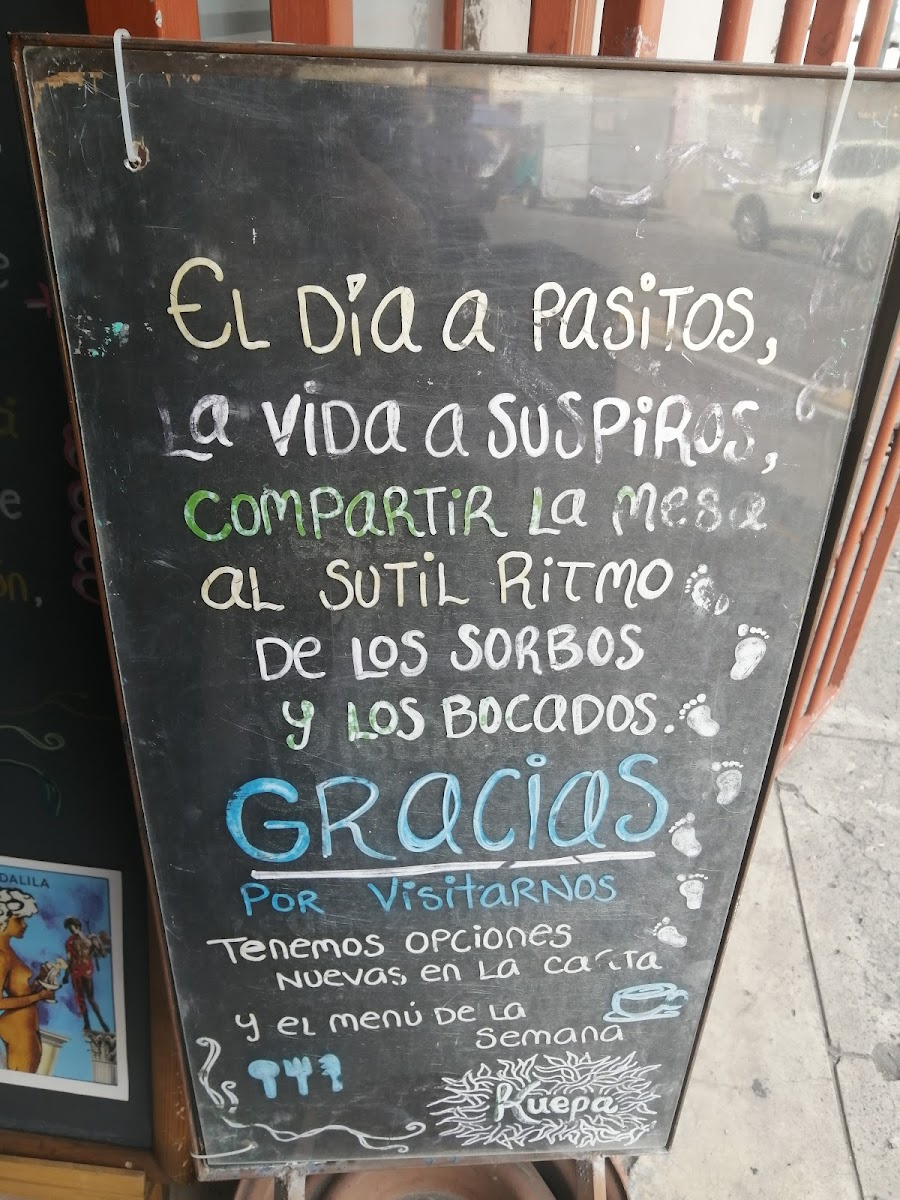 El Día a pasitos,
La vida a suspiros,
compartir la mesa
al sutil ritmo
de los sorbos
y los bocados.
Gracias
Por visitarnos
Tenemos opciones
nuevas en la carta
y el menú de la
semana
Kuepa
DALILA